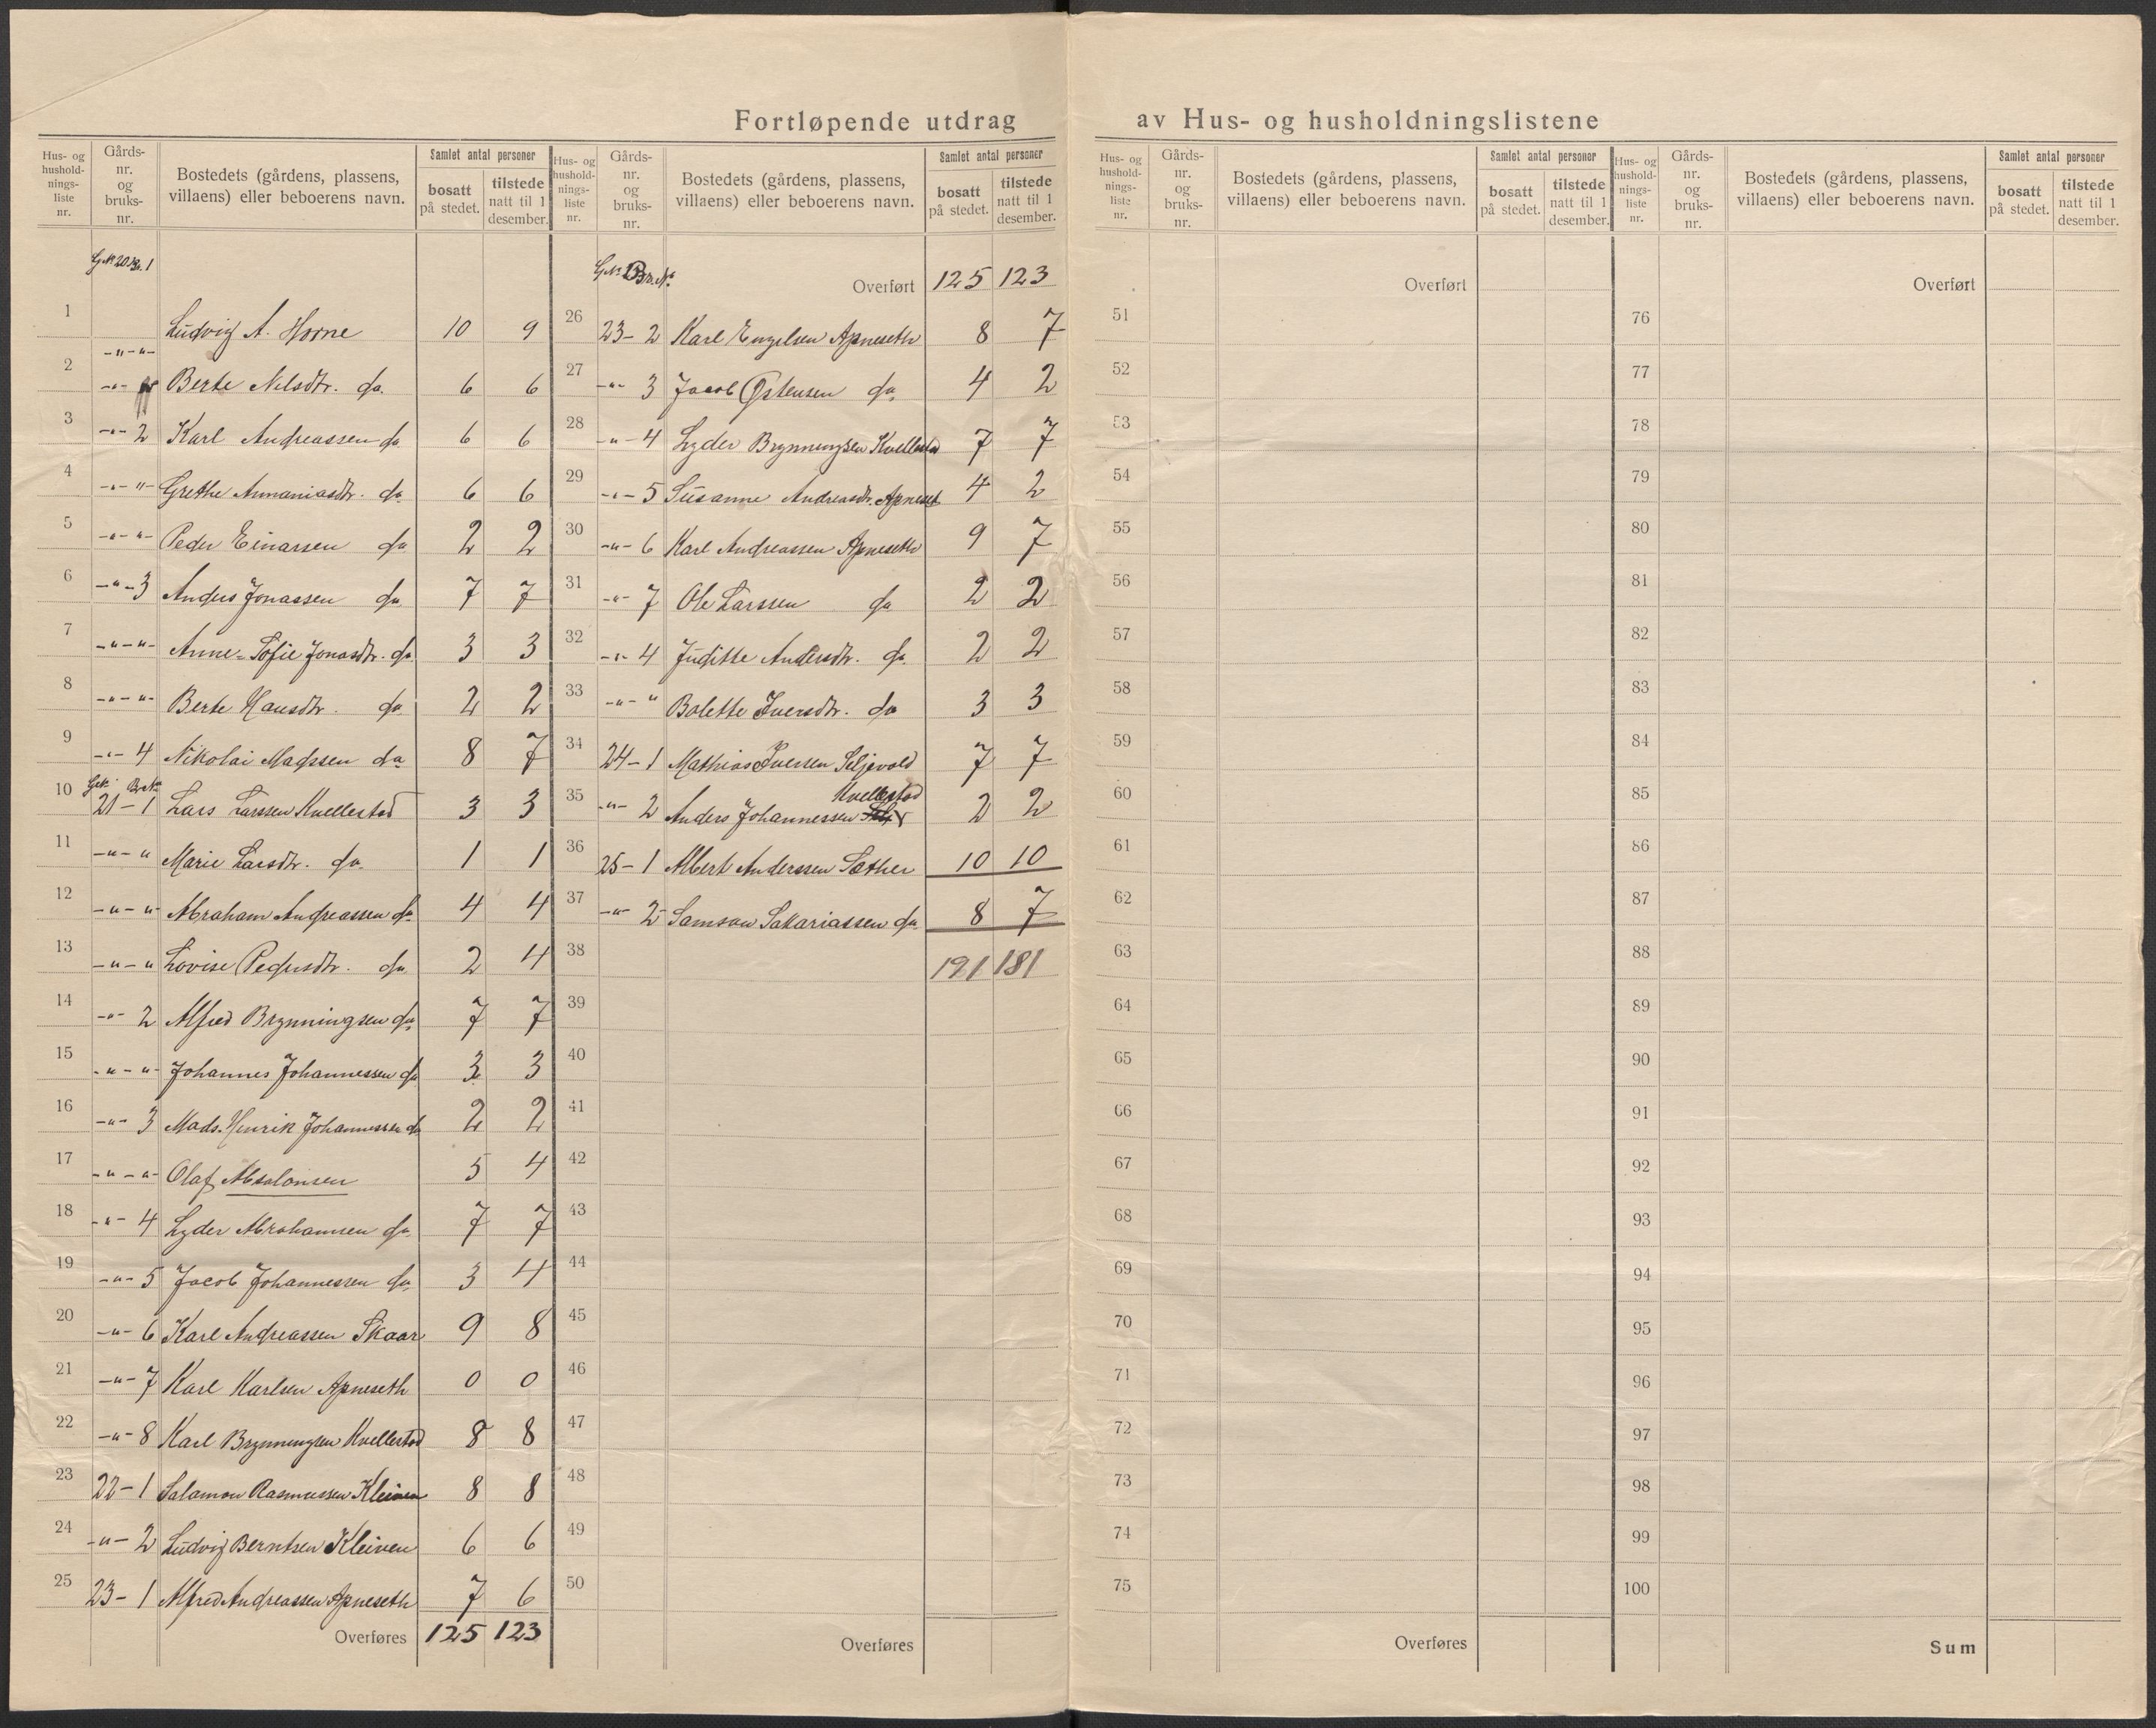 Fortløpende utdrag av Hus- og husholdningslistene
Hus- og hushold-nings-liste nr. | Gårds-nr. og bruks-nr. | Bostedets (gårdens, plassens, villaens) eller beboerens navn. | Samlet antal personer | bosatt på stedet. | tilstede natt til 1 desember.
G.Nr. 20 Br. 1
1 Ludvig A. Horne 10 9
2 -"- " Berte Nilsdtr. do. 6 6
3 -"- 2 Karl Andreassen do 6 6
4 -"- " Grethe Annaniasdtr. do 6 6
5 -"- " Peder Einarssen do 2 2
6 -"- 3 Anders Jonassen do 7 7
7 -"- " Anne-Sofie Jonasdtr. do 3 3
8 -"- " Berte Hansdtr. do 2 2
9 -"- 4 Nikolai Madssen do 8 7
G.Nr. Br.Nr.
10 21-1 Lars Larssen Kvellestad 3 3
11 -"- " Marie Larsdtr. do. 1 1
12 -"- " Abraham Andreassen do 4 4
13 -"- " Lovise Pedersdtr. do 2 4
14 -"- 2 Alfred Brynningsen do 7 7
15 -"- " Johannes Johannessen do 3 3
16 -"- 3 Mads. Henrik Johannessen do 2 2
17 -"- " Olaf Absalonsen 5 4
18 -"- 4 Lyder Abrahamsen do 7 7
19 -"- 5 Jacob Johannessen do 3 4
20 -"- 6 Karl Andreassen Skaar 9 8
21 -"- 7 Karl Karlsen Apneseth 0 0
22 -"- 8 Karl Brynningsen Kvellestad 8 8
23 22-1 Salamon Rasmussen Kleiven 8 8
24 -"- 2 Ludvig Berntsen Kleiven 6 6
25 23-1 Alfred Andreassen Apneseth 7 6
Overføres 125 123
Hus- og hushold-nings-liste nr. | Gårds-nr. og bruks-nr. | Bostedets (gårdens, plassens, villaens) eller beboerens navn. | Samlet antal personer | bosatt på stedet. | tilstede natt til 1 desember.
G.Nr. Br.Nr. Overført 125 123
26 23-2 Karl Engelsen Apneseth 8 7
27 -"- 3 Jacob Østensen do 4 2
28 -"- 4 Lyder Brynningsen Kvellestad 7 7
29 -"- 5 Susanne Andreasdtr. Apneset 4 2
30 -"- 6 Karl Andreassen Apneseth 9 7
31 -"- 7 Ole Larssen do 2 2
32 -"- 4 Juditte Andersdtr. do 2 2
33 -"- " Bolette Iversdtr. do 3 3
34 24-1 Mathias Iversen Seljevold 7 7
35 -"- 2 Anders Johannessen Kvellestad 2 2
36 25-1 Albert Anderssen Sæther 10 10
37 -"- 2 Samson Sakariassen do 8 7
38 191 181
39
40
41
42
43
44
45
46
47
48
49
50
Overføres
Hus- og hushold-nings-liste nr. | Gårds-nr. og bruks-nr. | Bostedets (gårdens, plassens, villaens) eller beboerens navn. | Samlet antal personer | bosatt på stedet. | tilstede natt til 1 desember.
Overført
51
52
53
54
55
56
57
58
59
60
61
62
63
64
65
66
67
68
69
70
71
72
73
74
75
Overføres
Hus- og hushold-nings-liste nr. | Gårds-nr. og bruks-nr. | Bostedets (gårdens, plassens, villaens) eller beboerens navn. | Samlet antal personer | bosatt på stedet. | tilstede natt til 1 desember.
Overført
76
77
78
79
80
81
82
83
84
85
86
87
88
89
90
91
92
93
94
95
96
97
98
99
100
Sum